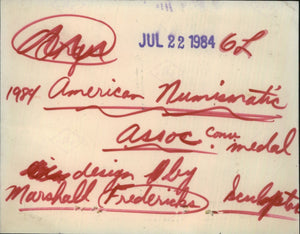 JUL 22 1984 6L
1984 American Numismatic
Assoc Conv. medal
design by
Marshall Fredericks Sculptor